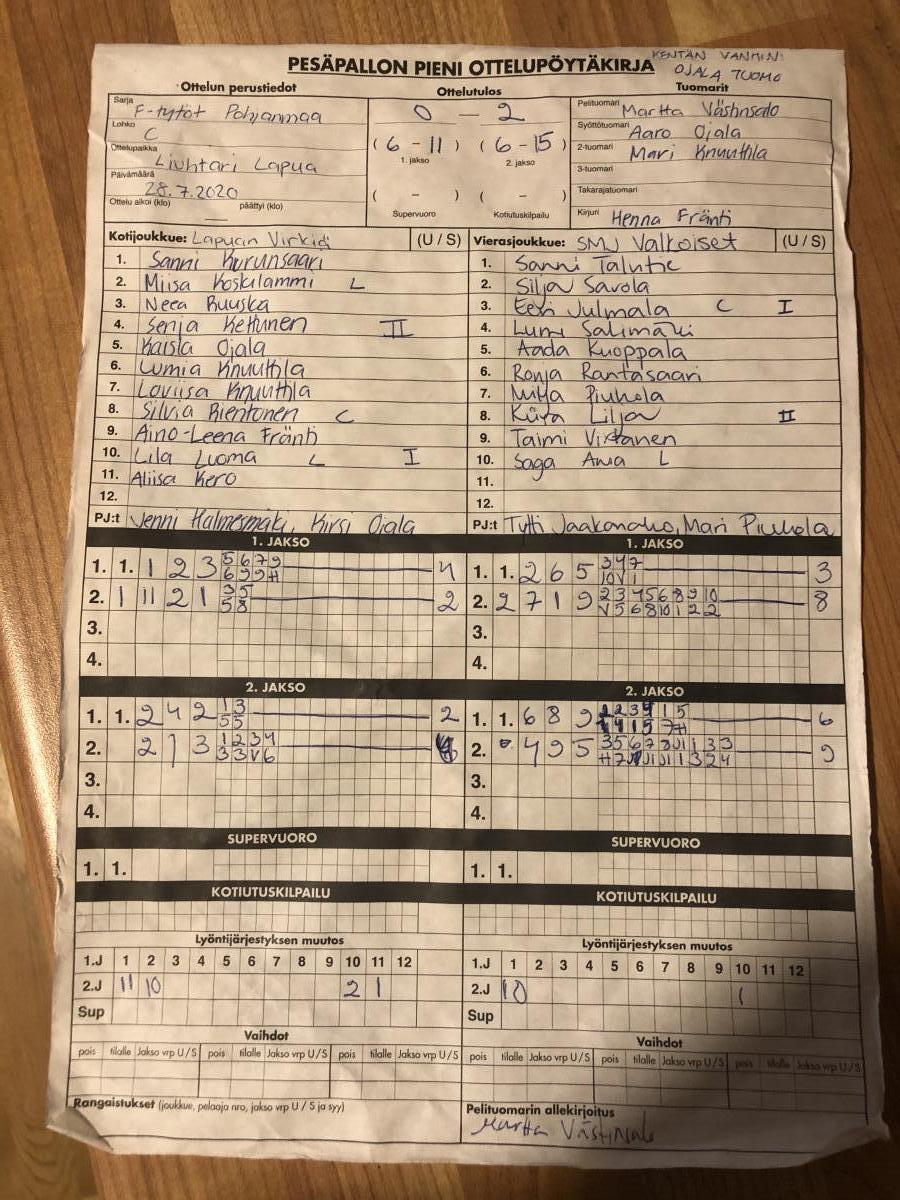 PESÄPALLON PIENI OTTELUPÖYTÄKIRJA
KENTÄN VANHIN:
OJALA TUOMO
Ottelun perustiedot
Sarja F-tytöt Pohjanmaa
Lohko C
Ottelupaikka Liuhtari Lapua
Päivämäärä 28.7.2020
Ottelu alkoi (klo) — päättyi (klo)
Ottelutulos
0 — 2
( 6 - 11 ) ( 6 - 15 )
1. jakso 2. jakso
( - ) ( - )
Supervuoro Kotiutuskilpailu
Tuomarit
Pelituomari Martta Västinsalo
Syöttötuomari Aaro Ojala
2-tuomari Mari Knuuttila
3-tuomari
Takarajatuomari
Kirjuri Henna Fränti
Kotijoukkue: Lapuan Virkiä (U / S)
1. Sanni Kurunsaari
2. Miisa Koskilammi L
3. Neea Ruuska
4. Senja Kettunen II
5. Kaisla Ojala
6. Lumia Knuuttila
7. Loviisa Knuuttila
8. Silvia Rientonen C
9. Aino-Leena Fränti
10. Lila Luoma L I
11. Aliisa Kero
12.
PJ:t Jenni Halmesmäki, Kirsi Ojala
Vierasjoukkue: SMJ Valkoiset (U / S)
1. Sanni Talvitie
2. Silja Savola
3. Eevi Julmala C I
4. Lumi Salimäki
5. Aada Kuoppala
6. Ronja Rantasaari
7. Miita Piuhola
8. Lilja II
9. Taimi Virtanen
10. Saga L
11.
12.
PJ:t Tytti Jaakonaho, Mari Piuhola
1. JAKSO
1. 1. 1 2 3 5 6 7 9 4
6 9 9 H
2. 1 11 2 1 3 5 2
5 8
3.
4.
1. JAKSO
1. 1. 2 6 5 3 4 7 3
10 V 1
2. 2 7 1 9 2 3 4 5 6 8 9 10 8
V 5 6 8 10 1 2 2
3.
4.
2. JAKSO
1. 1. 2 4 2 1 3 2
5 5
2. 2 7 3 1 2 3 4
3 3 V 6
3.
4.
2. JAKSO
1. 1. 6 8 9 6
2. 4 9 5 9
3.
4.
SUPERVUORO
1. 1.
SUPERVUORO
1. 1.
KOTIUTUSKILPAILU
KOTIUTUSKILPAILU
Lyöntijärjestyksen muutos
1.J 1 2 3 4 5 6 7 8 9 10 11 12
2.J 11 10 2 1
Sup
Lyöntijärjestyksen muutos
1.J 1 2 3 4 5 6 7 8 9 10 11 12
2.J 10 1
Sup
Vaihdot
pois tilalle Jakso vrp U / S pois tilalle Jakso vrp U / S pois tilalle Jakso vrp U / S
Vaihdot
pois tilalle Jakso vrp U / S pois tilalle Jakso vrp U / S pois tilalle Jakso vrp U / S
Rangaistukset (joukkue, pelaaja nro, jakso vrp U / S ja syy)
Pelituomarin allekirjoitus
Martta Västinsalo